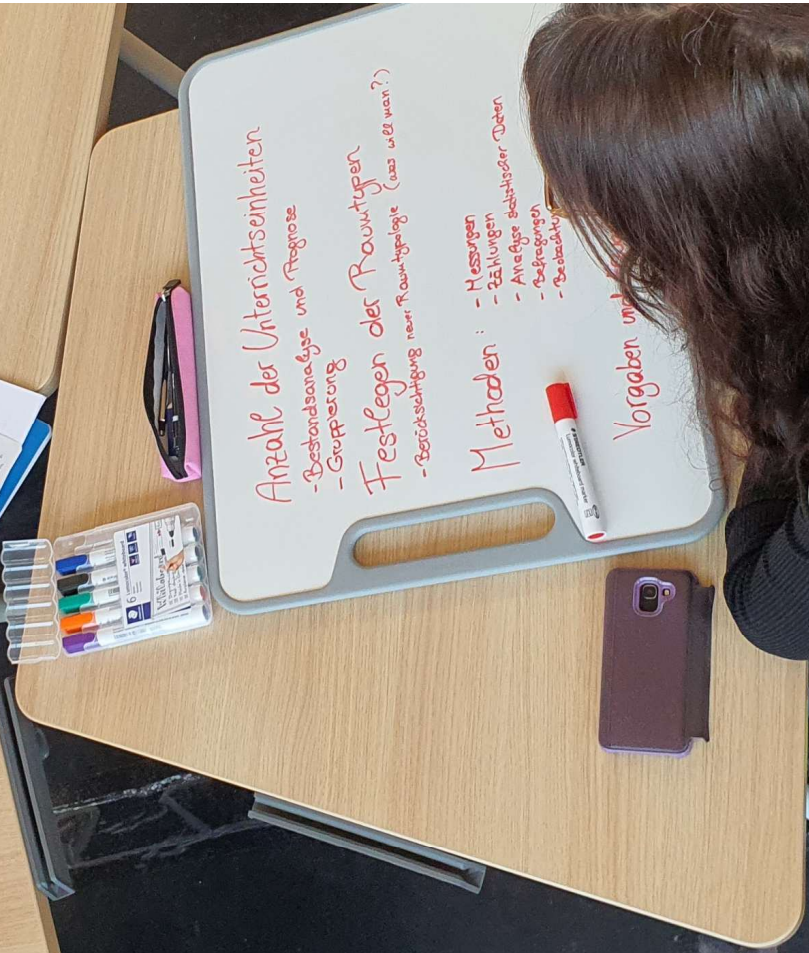 Anzahl der Unterrichtseinheiten
- Bestandsanalyse und Prognose
- Gruppierung
Festlegen der Raumtypen
- Berücksichtigung neuer Raumtypologie (was will man?)
Methoden: - Messungen
- Zählungen
- Analyse statistischer Daten
- Befragungen
- Beobachtun
Vorgaben und
6
Whiteboard